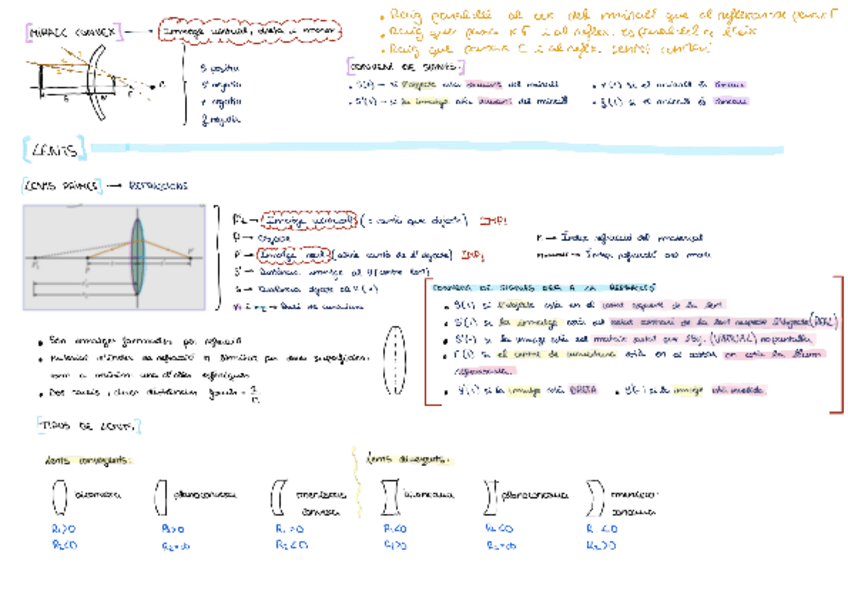 • Raig paral·lel al eix del mirall que al reflexar-se passa F
• Raig que passa x F i al reflex. és paral·lel a l'eix
• Raig que passa C i al reflex. sentit contrari
[MIRALL CONVEX] → Imatge virtual, dreta i menor
S positiu
S' negatiu
r negatiu
f negatiu
[CONVENI DE SIGNES:]
• S(+) → si l'objecte està davant del mirall
• S'(+) → si la imatge està davant del mirall
• r(+) si el mirall és còncau
• f(+) si el mirall és còncau
[LENTS]
[LENTS PRIMES] → REFRACCIONS
Imatge virtual (= cantó que objecte) IMP!
P → Objecte
P' → Imatge real (altre cantó de l'objecte) IMP!
S' → Distància imatge al
S → Distància objecte al
→ Radi de curvatura
n → Índex refracció del material
→ Índex refracció del medi
CONVENI DE SIGNES PER A LA REFRACCIÓ
• S(+) si l'objecte està en el costat esquerre de la lent
• S'(+) si la imatge està al costat contrari de la lent respecte l'objecte (REAL)
• S'(-) si la imatge està del mateix costat que l'obj. (VIRTUAL) no pantalla
• r(+) si el centre de curvatura està en el costat on està la llum refractada.
• y'(+) si la imatge està DRETA
• y'(-) si la imatge està invertida
• Són imatges formades per refracció
• Material d'índex de refracció n limitat per dues superfícies: com a mínim una d'elles esfèriques
• Dos focus, dues distàncies focals =
[TIPUS DE LENTS]
Lents convergents:
Lents divergents:
biconvexa
planoconvexa
meniscus convexa
bicòncava
planocòncava
menisco-còncava
R₁>0
R₁>0
R₁>0
R₁<0
R₁<0
R₁<0
R₂<0
R₂=∞
R₂<0
R₂>0
R₂=∞
R₂>0